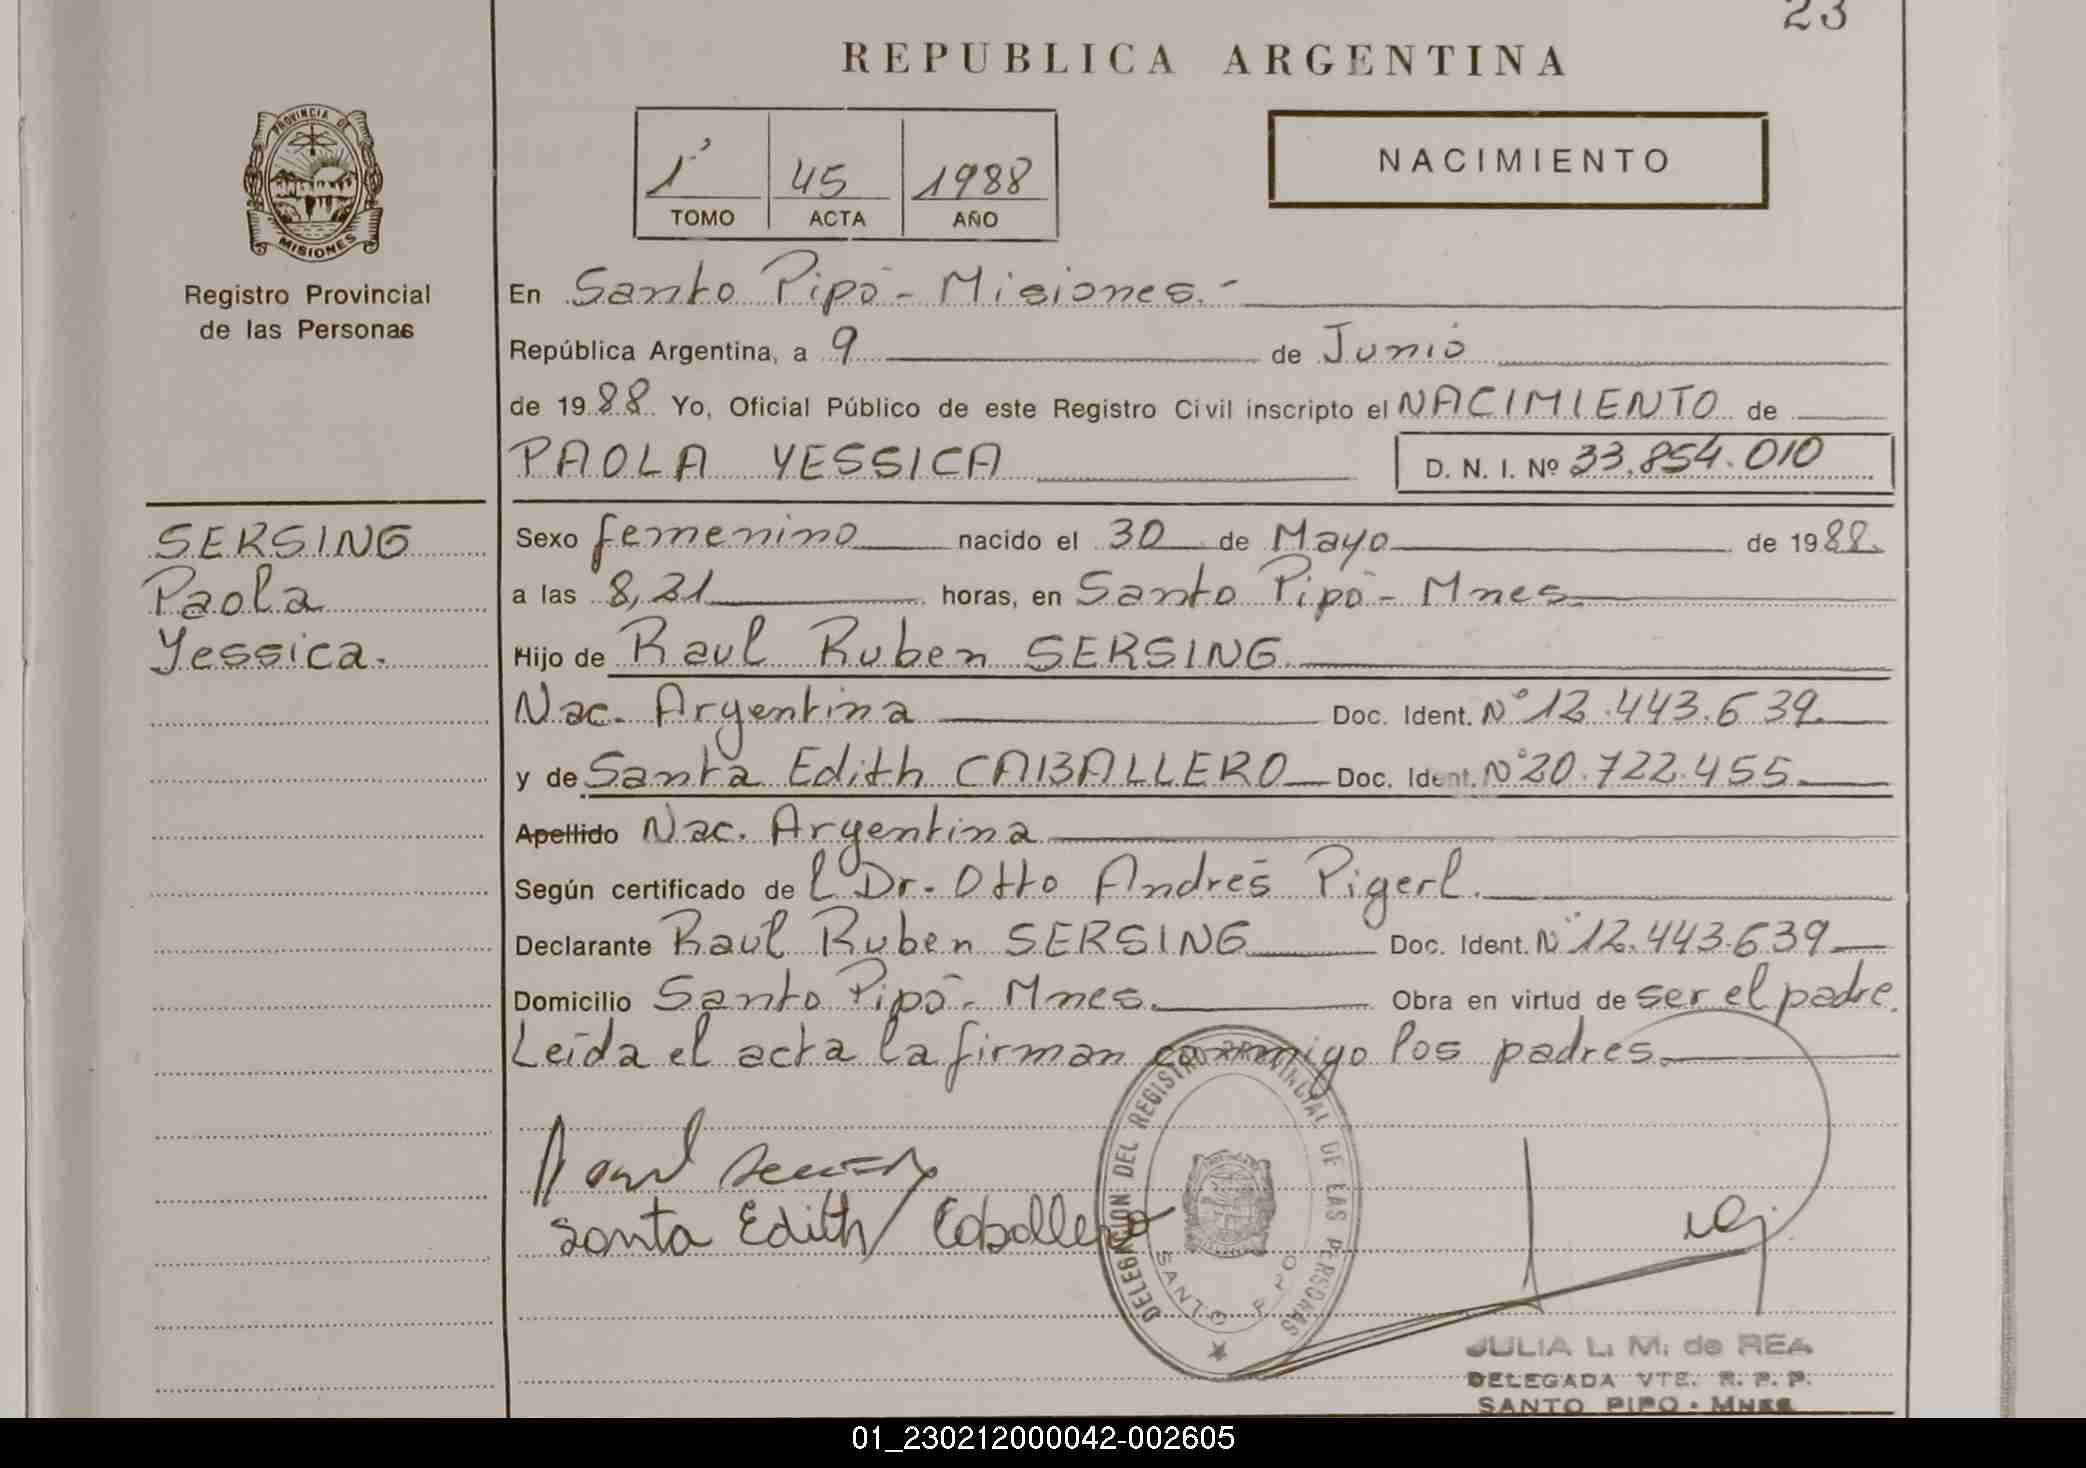 23
REPUBLICA ARGENTINA
PROVINCIA DE
MISIONES
Registro Provincial
de las Personas
1º 45 1988
TOMO ACTA AÑO
NACIMIENTO
En Santo Pipó - Misiones.-
República Argentina, a 9 de Junio
de 1988 Yo, Oficial Público de este Registro Civil inscripto el NACIMIENTO de
PAOLA YESSICA D. N. I. Nº 33.854.010
SERSING
Paola
Yessica.
Sexo femenino nacido el 30 de Mayo de 1988.
a las 8,21 horas, en Santo Pipó - Mnes.
Hijo de Raul Ruben SERSING.
Nac. Argentina Doc. Ident. Nº 12.443.639.
y de Santa Edith CABALLERO Doc. Ident. Nº 20.722.455.
Apellido Nac. Argentina
Según certificado del Dr. Otto Andrés Pigerl.
Declarante Raul Ruben SERSING Doc. Ident. Nº 12.443.639
Domicilio Santo Pipó - Mnes. Obra en virtud de ser el padre.
Leída el acta la firman conmigo los padres.
Raul
Santa Edith Caballero
DELEGACION DEL REGISTRO PROVINCIAL DE LAS PERSONAS
SANTO PIPO
JULIA L. M. de REA
DELEGADA VTE. R. P. P.
SANTO PIPO - MNES
01_230212000042-002605